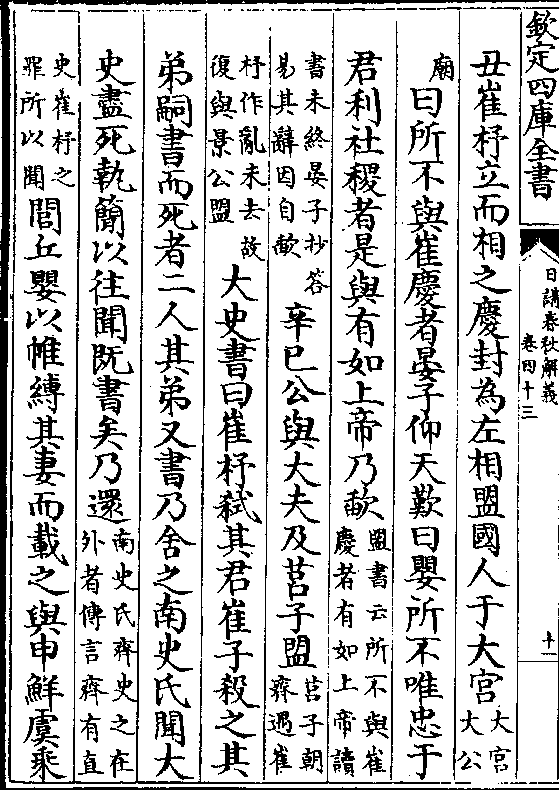 欽定四庫全書
日講春秋解義
卷四十三
十
丑崔杼立而相之慶封為左相盟國人于大宮大宮大公
廟曰所不與崔慶者晏子仰天歎曰嬰所不唯忠于
君利社稷者是與有如上帝乃歃盟書云所不與崔慶者有如上帝讀
書未終晏子抄答易其辭因自歃辛巳公與大夫及莒子盟莒子朝齊遇崔
杼作亂未去故復與景公盟大史書曰崔杼弒其君崔子殺之其
弟嗣書而死者二人其弟又書乃舍之南史氏聞大
史盡死執簡以往聞既書矣乃還南史氏齊史之在外者傳言齊有直
史崔杼之罪所以聞閭丘嬰以帷縛其妻而載之與申鮮虞乘